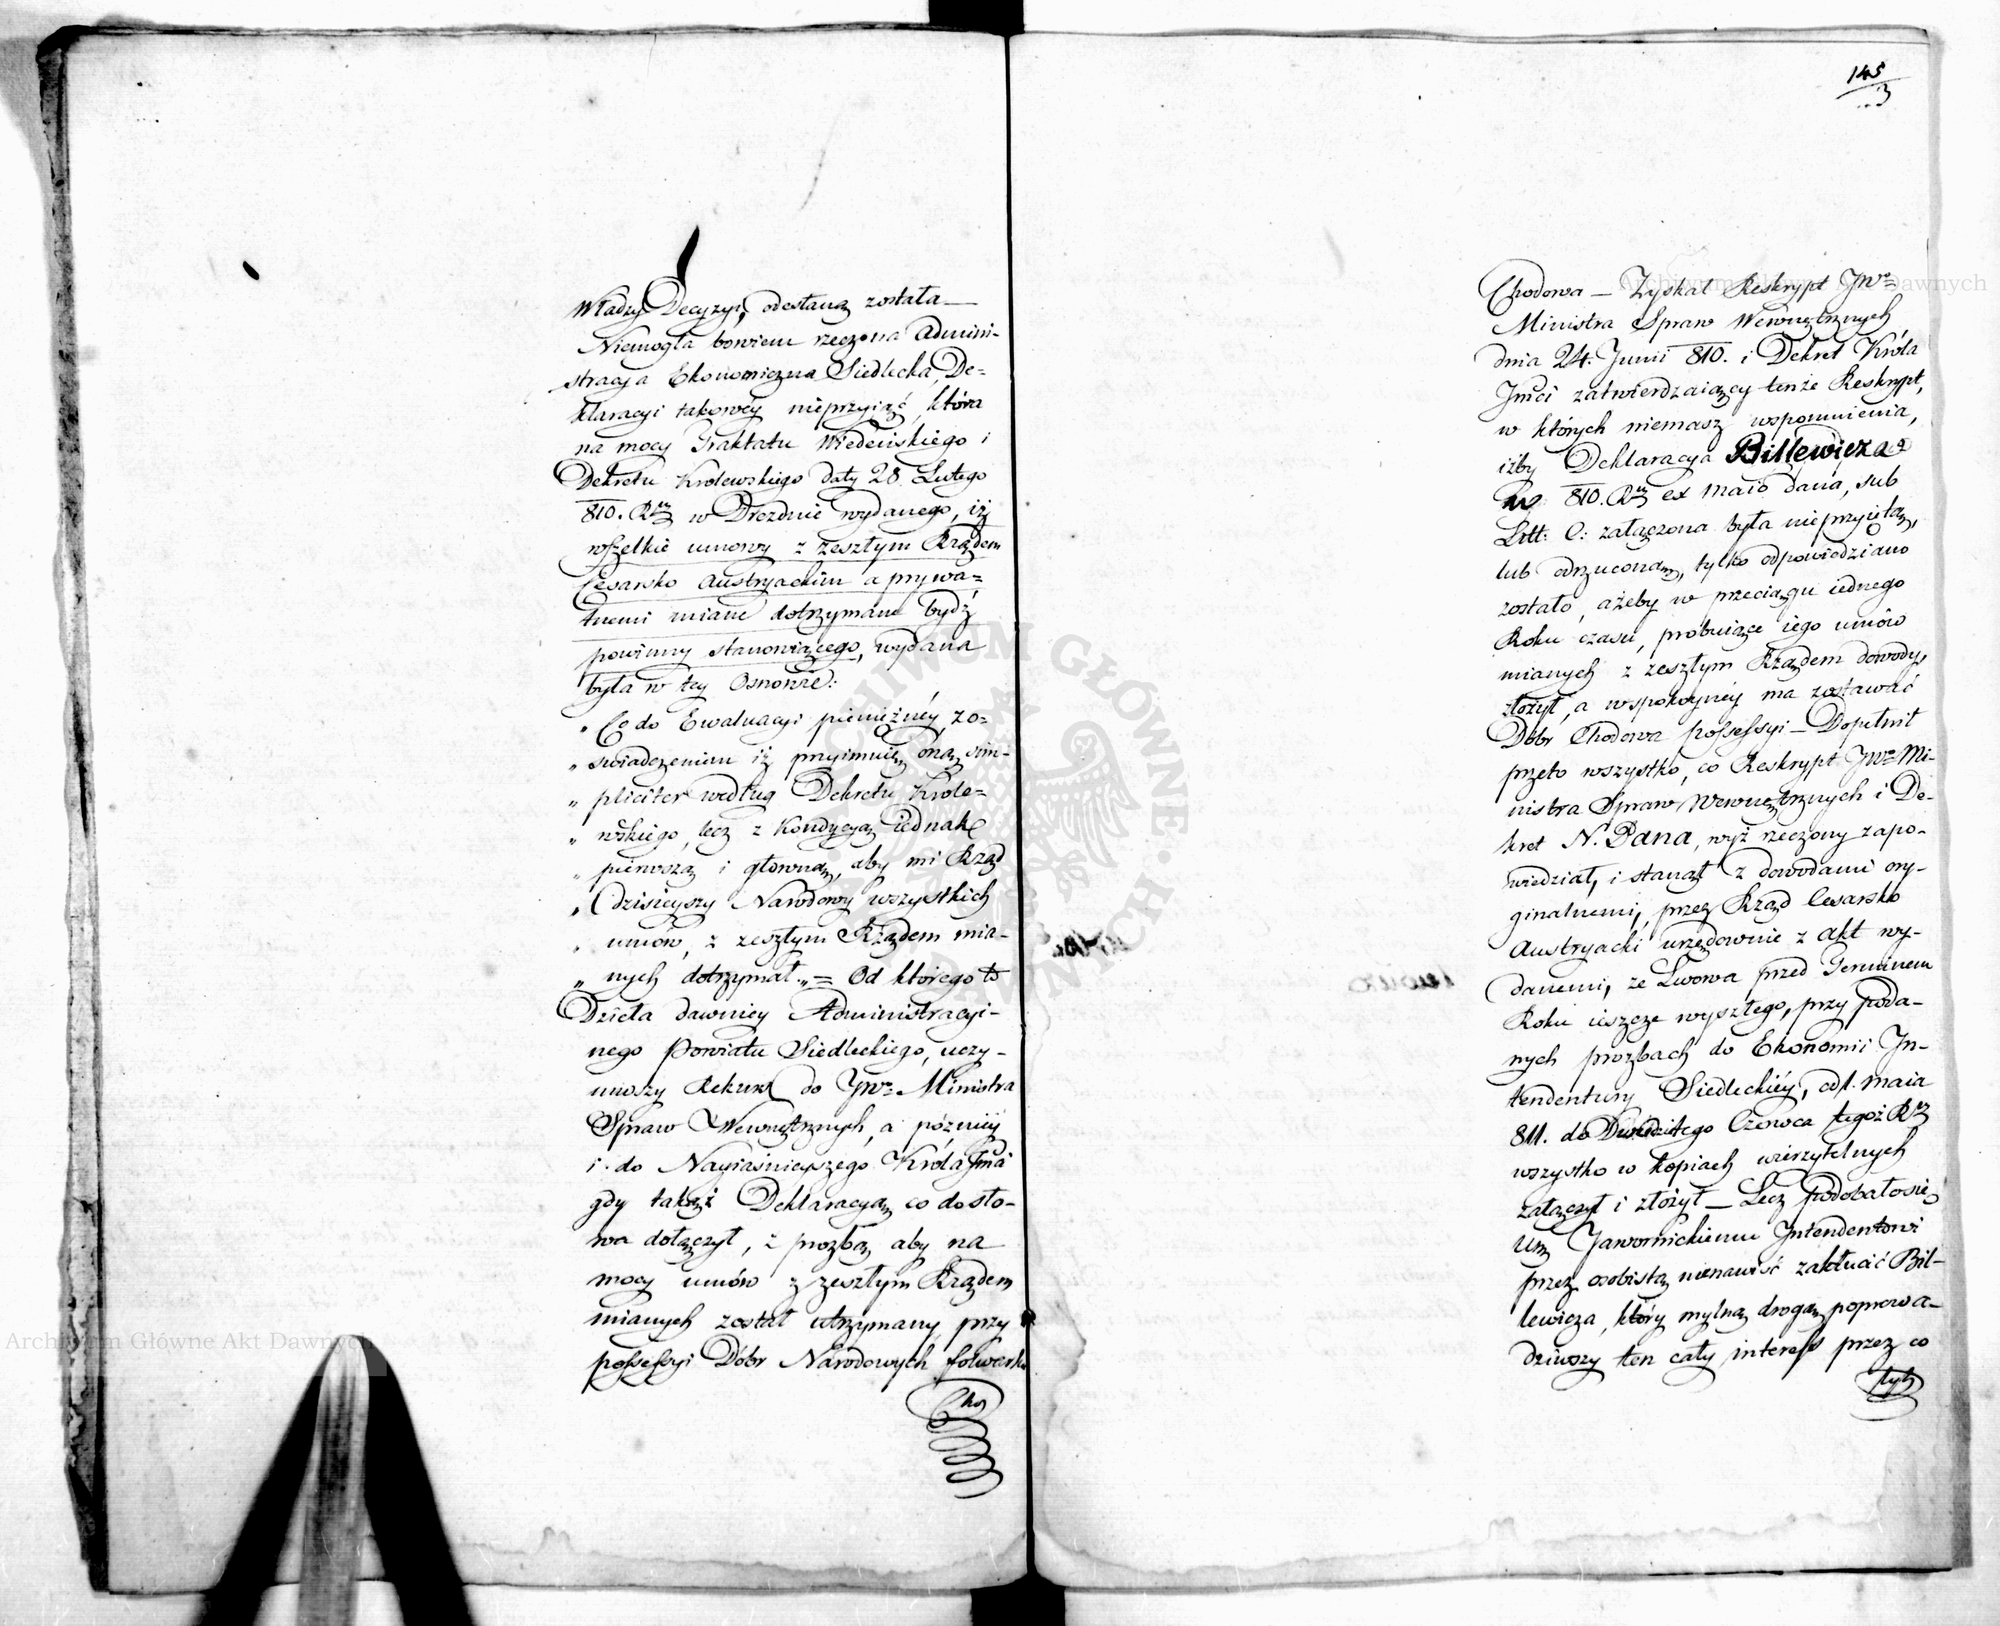 Władzy Decyzyi, odesłaną została —
Niemogła bowiem rzeczona Admini-
stracyja Ekonomiczna Siedlecka, De=
klaracyi takowéy nieprzyiąć, która
na mocy Traktatu Wiedeńskiego i
Dekretu Krolewskiego daty 28. Lutego
810. Rku w Dreznie wydanego, iż
wszelkie umowy z zeszłym Rządem
Cesarsko Austryackim a prywa=
tnemi miane dotrzymane bydź
powinny stanowiącego, wydana
była w tey Osnowie:
„ Co do Ewaluacyi pieniężnéy, zo=
„ swiadczeniem iż przyimuię oną sim-
„ pliciter według Dekretu Krole=
„ wskiego, lecz z Kondycyą iednak
„ pierwszą i głowną, aby mi Rząd
„ dzisieyszy Narodowy wszystkich
„ umów, z zeszłym Rządem mia-
„ nych dotrzymał „ = Od którego to
Dzieła dawniey Administracyi-
nego Powiatu Siedleckiego, uczy-
niwszy Rekurs do JWo Ministra
Spraw Wewnętrznych, a pózniéy
i do Nayiaśnieyszego Króla Jmći
gdy takąż Deklaracyą co do sło-
wa dołączył, z prozbą, aby na
mocy umów z zeszłym Rządem
mianych został utrzymany przy
possessyi Dóbr Narodowych folwarku
Cho
145
3
Chodowa — Zyskał Reskrypt JWo
Ministra Spraw Wewnętrznych
dnia 24. Junii 810. i Dekret Króla
Jmći zatwierdzaiący tenże Reskrypt,
w których niemasz wspomnienia,
iżby Deklaracya Billewicza
w 810. Rku ex Maio dana, sub
Litt: C: załączona była nieprzyiętą,
lub odrzuconą, tylko odpowiedziano
zostało, ażeby w przeciągu iednego
Roku czasu, probuiące iego umów
mianych z zeszłym Rządem dowody,
złożył, a wspokoynéy ma zostawać
Dóbr Chodowa possessyi — Dopełnił
przeto wszystko, co Reskrypt JWo Mi-
nistra Spraw Wewnętrznych i De-
kret N. Pana, wyż rzeczony zapo-
wiedział, i stanął z dowodami ory-
ginalnemi, przez Rząd Cesarsko
Austryacki urzędownie z Akt wy-
danemi, ze Lwowa przed Terminem
Roku ieszcze wyszłego, przy poda-
nych prozbach do Ekonomii In-
tendentury Siedleckiéy, od 1. Maia
811. do Dwudziestego Czerwca tegoż Rku
wszystko w kopiach wierzytelnych
załączył i złożył — Lecz podobało się
Ur Jawornickiemu Intendentowi
przez osobistą nienawiść zakłucić Bil-
lewicza, który mylną drogą poprowa-
dziwszy ten cały interess przez co
tyle